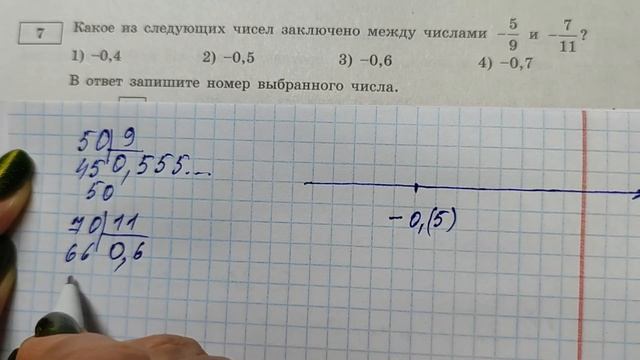 7 Какое из следующих чисел заключено между числами −5/9 и −7/11?
1) −0,4 2) −0,5 3) −0,6 4) −0,7
В ответ запишите номер выбранного числа.
50 9
45 0,555...
50
70 11
66 0,6
−0,(5)